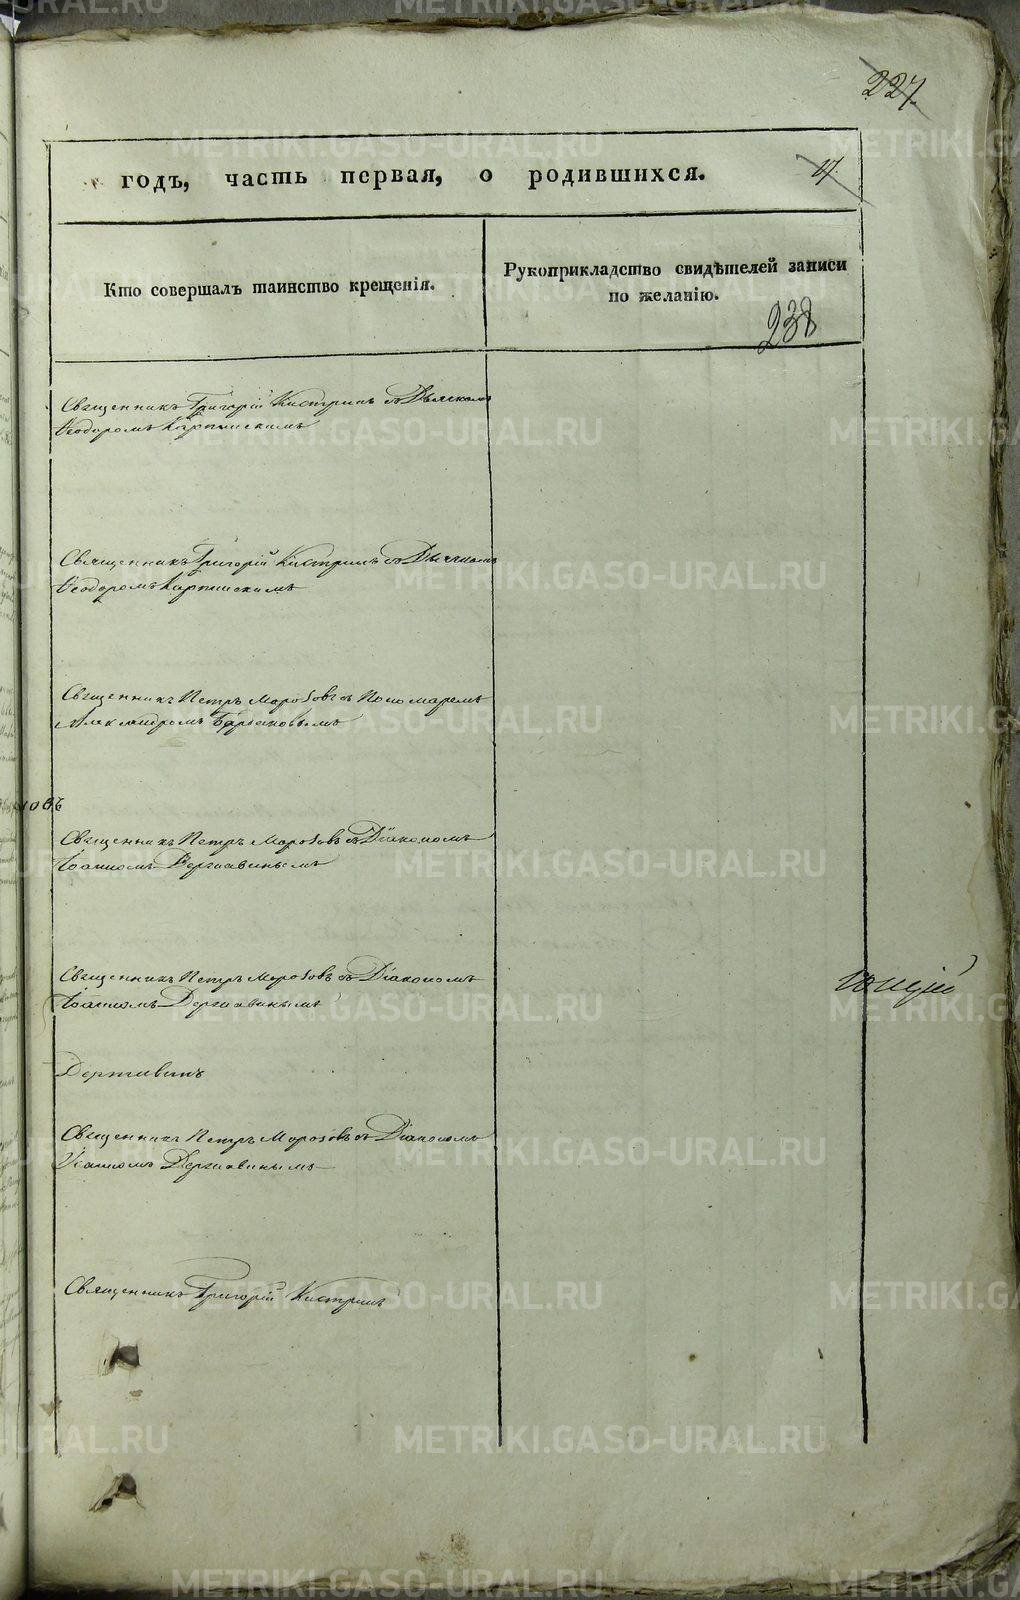 227.
годъ, часть первая, о родившихся.
17.
Кто совершалъ таинство крещенія.
Рукоприкладство свидѣтелей записи
по желанію.
238
Священникъ Григорій Кистринъ съ Дьячкомъ
Ѳеодоромъ Карпинскимъ
Священникъ Григорій Кистринъ съ Дьячкомъ
Ѳеодоромъ Карпинскимъ
Священникъ Петръ Морозовъ съ Пономаремъ
Александромъ
Священникъ Петръ Морозовъ съ Діакономъ
Іоанномъ Державинымъ
Священникъ Петръ Морозовъ съ Діакономъ
Іоанномъ Державинымъ
Державинъ
Священникъ Петръ Морозовъ съ Діакономъ
Іоанномъ Державинымъ
Священникъ Григорій Кистринъ
METRIKI.GASO-URAL.RU